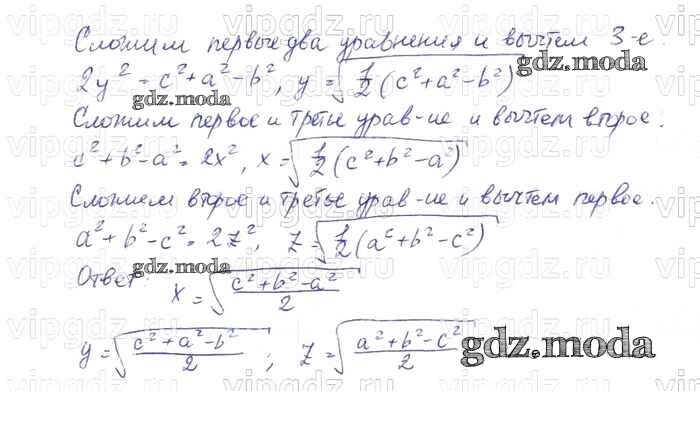 Сложим первые два уравнения и вычтем 3-е.
2y² = c² + a² - b², y = √(½(c² + a² - b²))
gdz.moda
Сложим первое и третье урав-ие и вычтем второе.
c² + b² - a² = 2x², x = √(½(c² + b² - a²))
gdz.moda
Сложим второе и третье урав-ие и вычтем первое.
a² + b² - c² = 2z², z = √(½(a² + b² - c²))
Ответ:
gdz.moda
x = √((c² + b² - a²)/2)
y = √((c² + a² - b²)/2); z = √((a² + b² - c²)/2)
gdz.moda